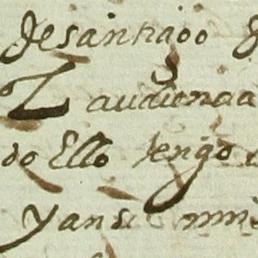 desantiago
Laudiencia
do Ello tengo
yansi mi